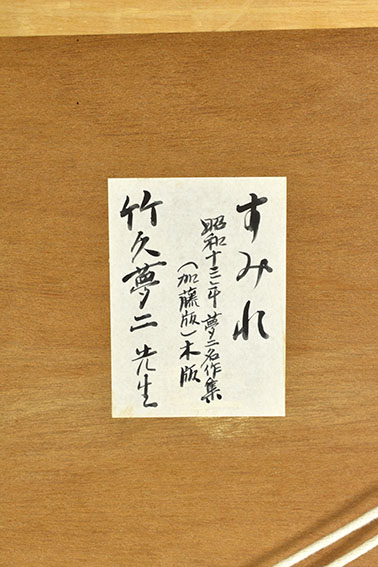 すみれ
昭和十三年夢二名作集
(加藤版)木版
竹久夢二先生